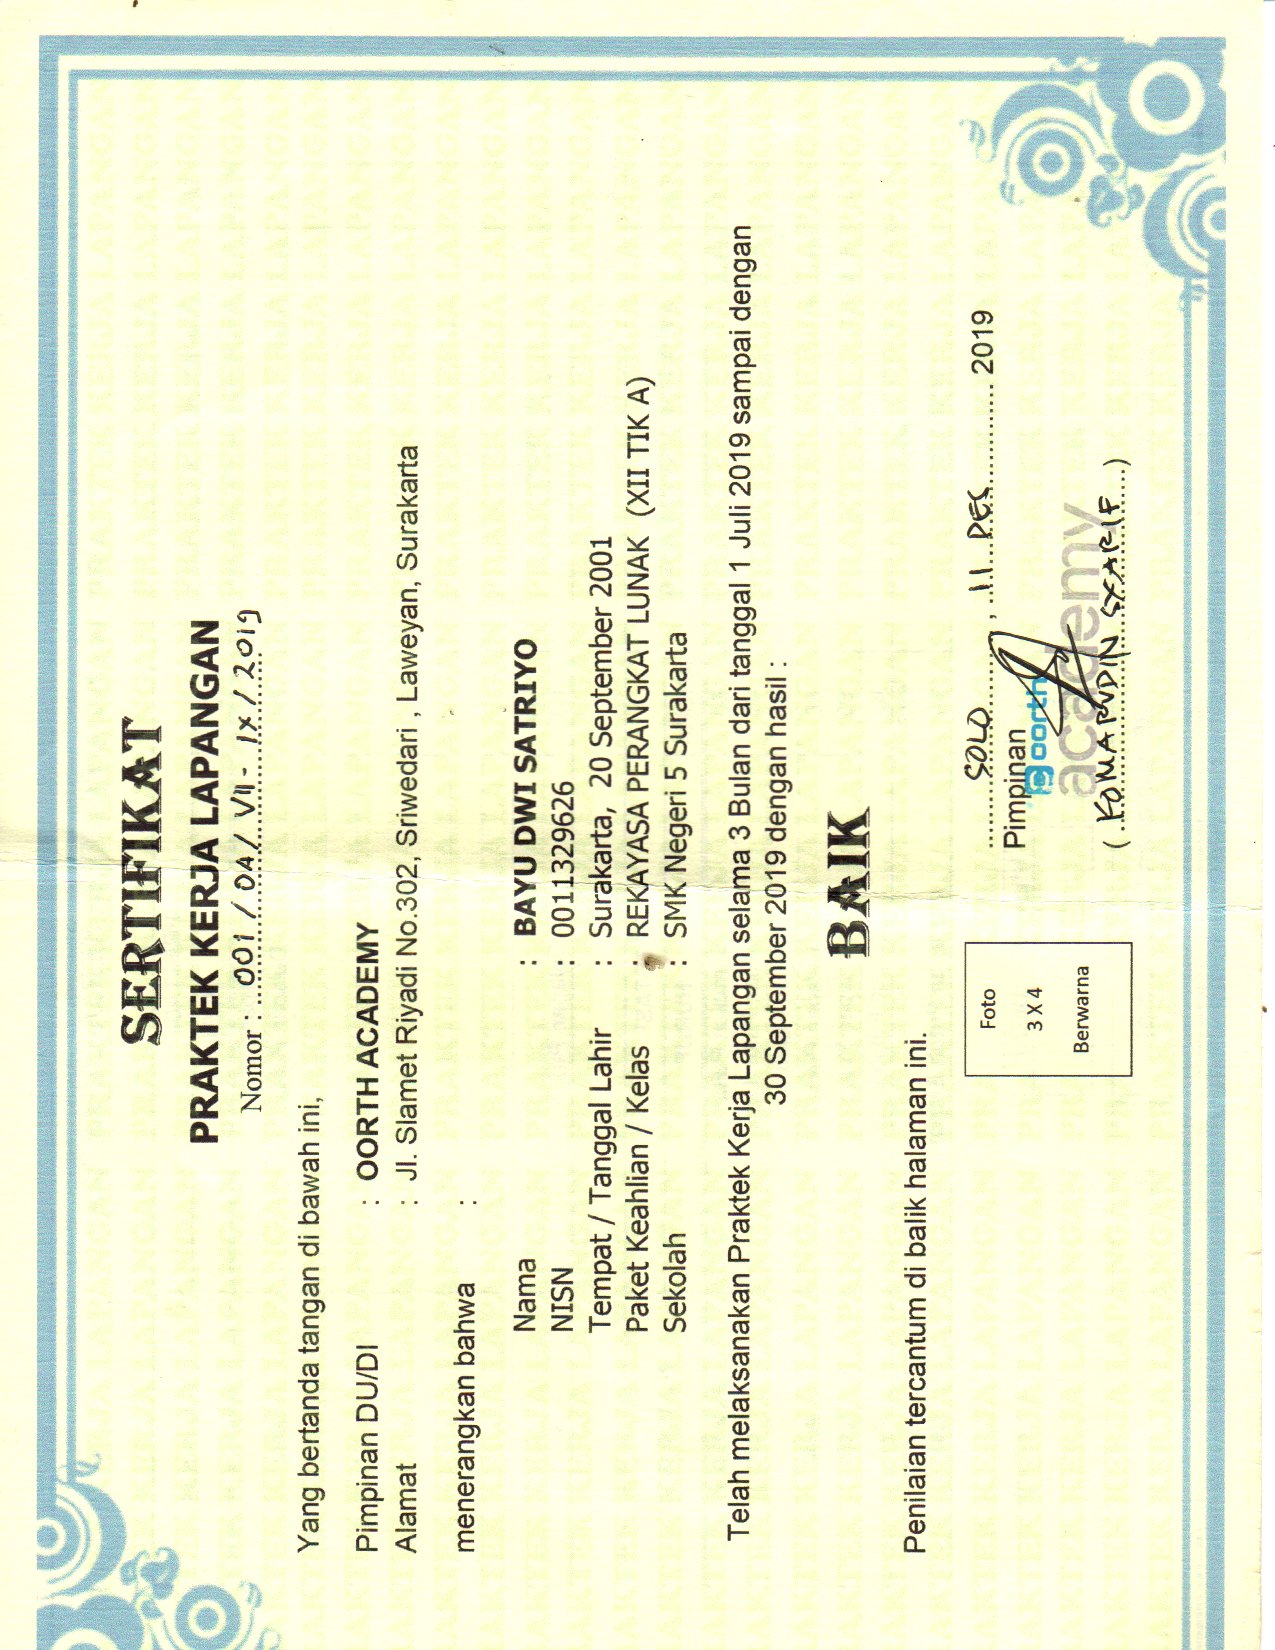 SERTIFIKAT
PRAKTEK KERJA LAPANGAN
Nomor : 001 / 04 / VII - IX / 2019
Yang bertanda tangan di bawah ini,
Pimpinan DU/DI : OORTH ACADEMY
Alamat : Jl. Slamet Riyadi No.302, Sriwedari , Laweyan, Surakarta
menerangkan bahwa :
Nama : BAYU DWI SATRIYO
NISN : 0011329626
Tempat / Tanggal Lahir : Surakarta, 20 September 2001
Paket Keahlian / Kelas : REKAYASA PERANGKAT LUNAK (XII TIK A)
Sekolah : SMK Negeri 5 Surakarta
Telah melaksanakan Praktek Kerja Lapangan selama 3 Bulan dari tanggal 1 Juli 2019 sampai dengan
30 September 2019 dengan hasil :
BAIK
Penilaian tercantum di balik halaman ini.
Foto
3 X 4
Berwarna
SOLO , 11 DES 2019
Pimpinan
oorth
academy
( KOMARUDIN SYARIF )